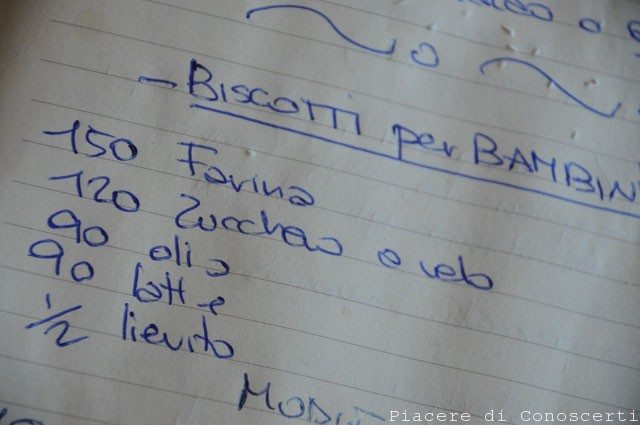 - BISCOTTI per BAMBIN
150 Farina
120 Zucchero a velo
90 olio
90 latte
1/2 lievito
Piacere di Conoscerti